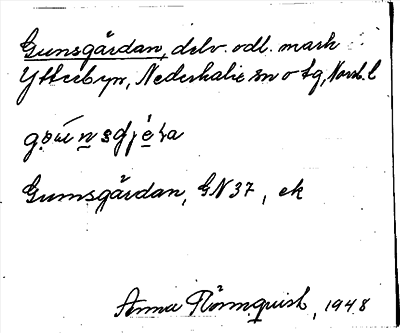 Gunsgårdan, delv. odl. mark
Ytterbyn, Nederkalix sn o tg, Norrb. l
Gumsgårdan, GN 37, ek
Anna Rönnquist, 1948